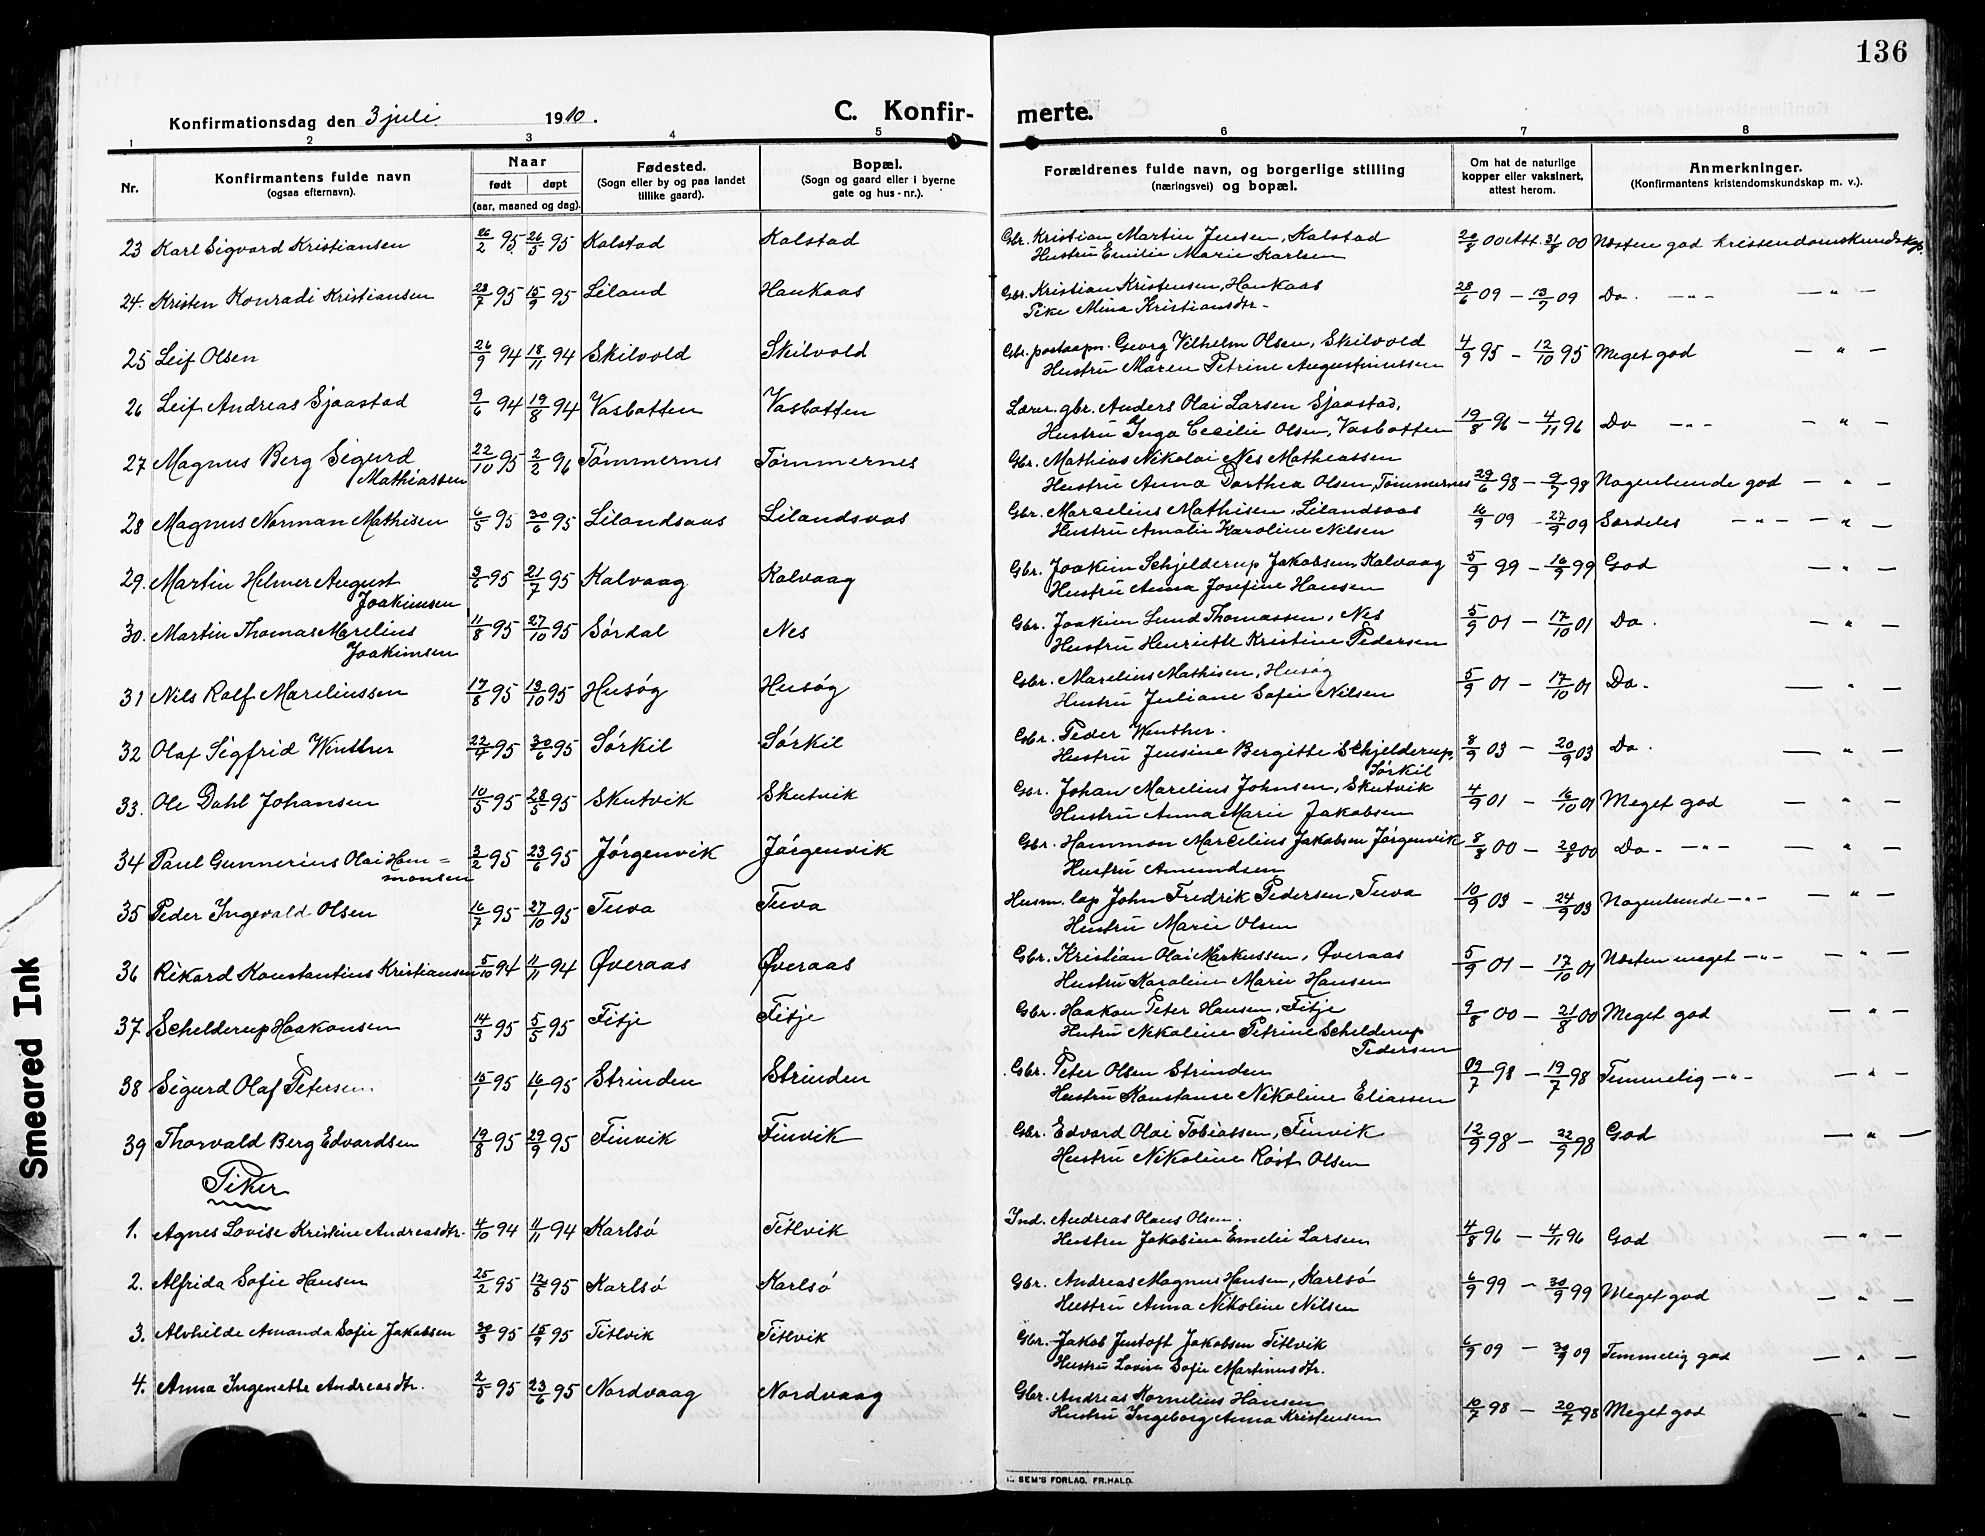 136
Konfirmationsdag den 3 juli 1910.
C. Konfir-
merte.
1 2 3 4 5 6 7 8
Nr.
Konfirmantens fulde navn
(ogsaa efternavn).
Naar
født døpt
(aar, maaned og dag).
Fødested.
(Sogn eller by og paa landet
tillike gaard).
Bopæl.
(Sogn og gaard eller i byerne
gate og hus-nr.).
Forældrenes fulde navn, og borgerlige stilling
(næringsvei) og bopæl.
Om hat de naturlige
kopper eller vaksinert,
attest herom.
Anmerkninger.
(Konfirmantens kristendomskundskap m. v.).
23 Karl Sigvard Kristiansen 26/2 95 26/5 95 Kalstad Kalstad Gbr. Kristian Martin Jensen, Kalstad 20/8 00 Att. 31/8 00 Næsten god kristendomskundskap.
Hustru Emilie Marie Karlsen
24. Kristen Konradi Kristiansen 23/7 95 15/9 95 Liland Haukaas Gbr. Kristian Kristensen, Haukaas 28/6 09 — 13/9 09 Do. —„— — „ —
Pike Mina Kristiansdtr.
25 Leif Olsen 26/9 94 18/11 94 Skilvold Skilvold Gbr. postaapn. Georg Vilhelm Olsen, Skilvold 4/9 95 — 12/10 95 Meget god — „ —
Hustru Maren Petrine Augustinussen
26 Leif Andreas Sjaastad 9/6 94 19/8 94 Vasbotten Vasbotten Lærer. gbr. Anders Olai Larsen Sjaastad,
Hustru Inga Cecilie Olsen, Vasbotten 19/8 96 — 4/11 96 Do —„— — „ —
27 Magnus Berg Sigurd 22/10 95 2/2 96 Tömmernes Tömmernes Gbr. Mathias Nikolai Nes Mathiassen
Mathiassen Hustru Anna Dorthea Olsen, Tömmernes 29/6 98 — 9/7 98 Nogenlunde god — „ —
28 Magnus Norman Mathisen 6/5 95 30/6 95 Lilandsaas Lilandsaas Gbr. Marcelius Mathisen, Lilandsaas 16/9 09 — 27/9 09 Særdeles —„— „ —
Hustru Amalie Karoline Nilsen
29. Martin Helmer August 3/6 95 21/7 95 Kalvaag Kalvaag Gbr. Joakim Schjelderup Jakobsen, Kalvaag 5/9 99 — 16/9 99 God — „ —
Joakimsen Hustru Anna Josefine Hansen
30. Martin Thomas Marelius 11/8 95 27/10 95 Sördal Nes Gbr. Joakim Lund Thomassen, Nes 5/9 01 — 17/10 01 Do. — „ —
Joakimsen Hustru Henriette Kristine Pedersen
31 Nils Rolf Mareliussen 17/8 95 13/10 95 Husøg Husøg Gbr. Marelius Mathisen, Husøg 5/9 01 — 17/10 01 Do. — „ —
Hustru Juliane Sofie Nilsen
32 Olaf Sigfrid Winther 22/4 95 30/6 95 Sörkil Sörkil Gbr. Peder Winther.
Hustru Jensine Bergitte Schjelderup, 8/9 03 — 20/9 03 Do. — „ —
Sörkil
33. Ole Dahl Johansen 10/5 95 28/5 95 Skutvik Skutvik Gbr. Johan Marelius Johnsen, Skutvik 4/9 01 — 16/10 01 Meget god — „ —
Hustru Anna Marie Jakobsen
34 Paul Gunnerius Olai Ham= 3/2 95 23/6 95 Jörgenvik Jörgenvik Gbr. Hammon Marcelius Jakobsen Jörgenvik 8/8 00 — 20/8 00 Do. —„— — „ —
monsen Hustru Amundsen
35 Peder Ingevald Olsen 16/7 95 27/10 95 Tuva Tuva Husm. lap John Fredrik Pedersen, Tuva 10/9 03 — 24/9 03 Nogenlunde —„— — „ —
Hustru Marie Olsen
36 Rikard Konstantius Kristiansen 5/10 94 11/11 94 Øveraas Øveraas Gbr. Kristian Olai Markussen, Øveraas 5/9 01 — 17/10 01 Næsten meget —„— — „ —
Hustru Karoline Marie Hansen
37 Schelderup Haakonsen 14/3 95 5/5 95 Fitje Fitje Gbr. Haakon Peter Hansen, Fitje 9/8 00 — 21/8 00 Meget god — „ —
Hutru Nikoline Petrine Schelderup
Pedersen
38 Sigurd Olaf Petersen 15/1 95 16/1 95 Strinden Strinden Gbr. Peter Olsen Strinden 09/7 98 — 19/7 98 Temmelig —„— — „ —
Hustru Konstanse Nikoline Eliassen
39 Thorvald Berg Edvardsen 19/8 95 29/9 95 Finvik Finvik Gbr. Edvard Olai Tobiassen, Finvik 12/9 98 — 22/9 98 God — „ —
Hustru Nikoline Röst Olsen
Piker
1. Agnes Lovise Kristine Andreasdtr. 4/10 94 11/11 94 Karlsö Titlvik Ind. Andreas Olaus Olsen.
Hustru Jakobine Emelie Larsen 4/8 96 — 4/11 96 God — „ —
2. Alfrida Sofie Hansen 25/2 95 12/5 95 Karlsö Karlsö Gbr. Andreas Magnus Hansen, Karlsö 6/9 99 — 30/9 99 Meget god — „ —
Hustru Anna Nikoline Nilsen
3. Alvhilde Amanda Sofie Jakobsen 30/3 95 15/9 95 Titlvik Titlvik Gbr. Jakob Justoft Jakobsen Titlvik 6/9 09 — 30/9 09 Temmelig god — „ —
Hustru Lovise Sofie Martinusdtr.
4. Anna Ingenette Andreasdtr. 2/5 95 23/6 95 Nordvaag Nordvaag Gbr. Andreas Kornelius Hansen
Hustru Ingeborg Anna Kristensen 10/7 98 — 20/7 98 Meget god — „ —
SEM'S FORLAG, FR.HALD.
Smeared Ink